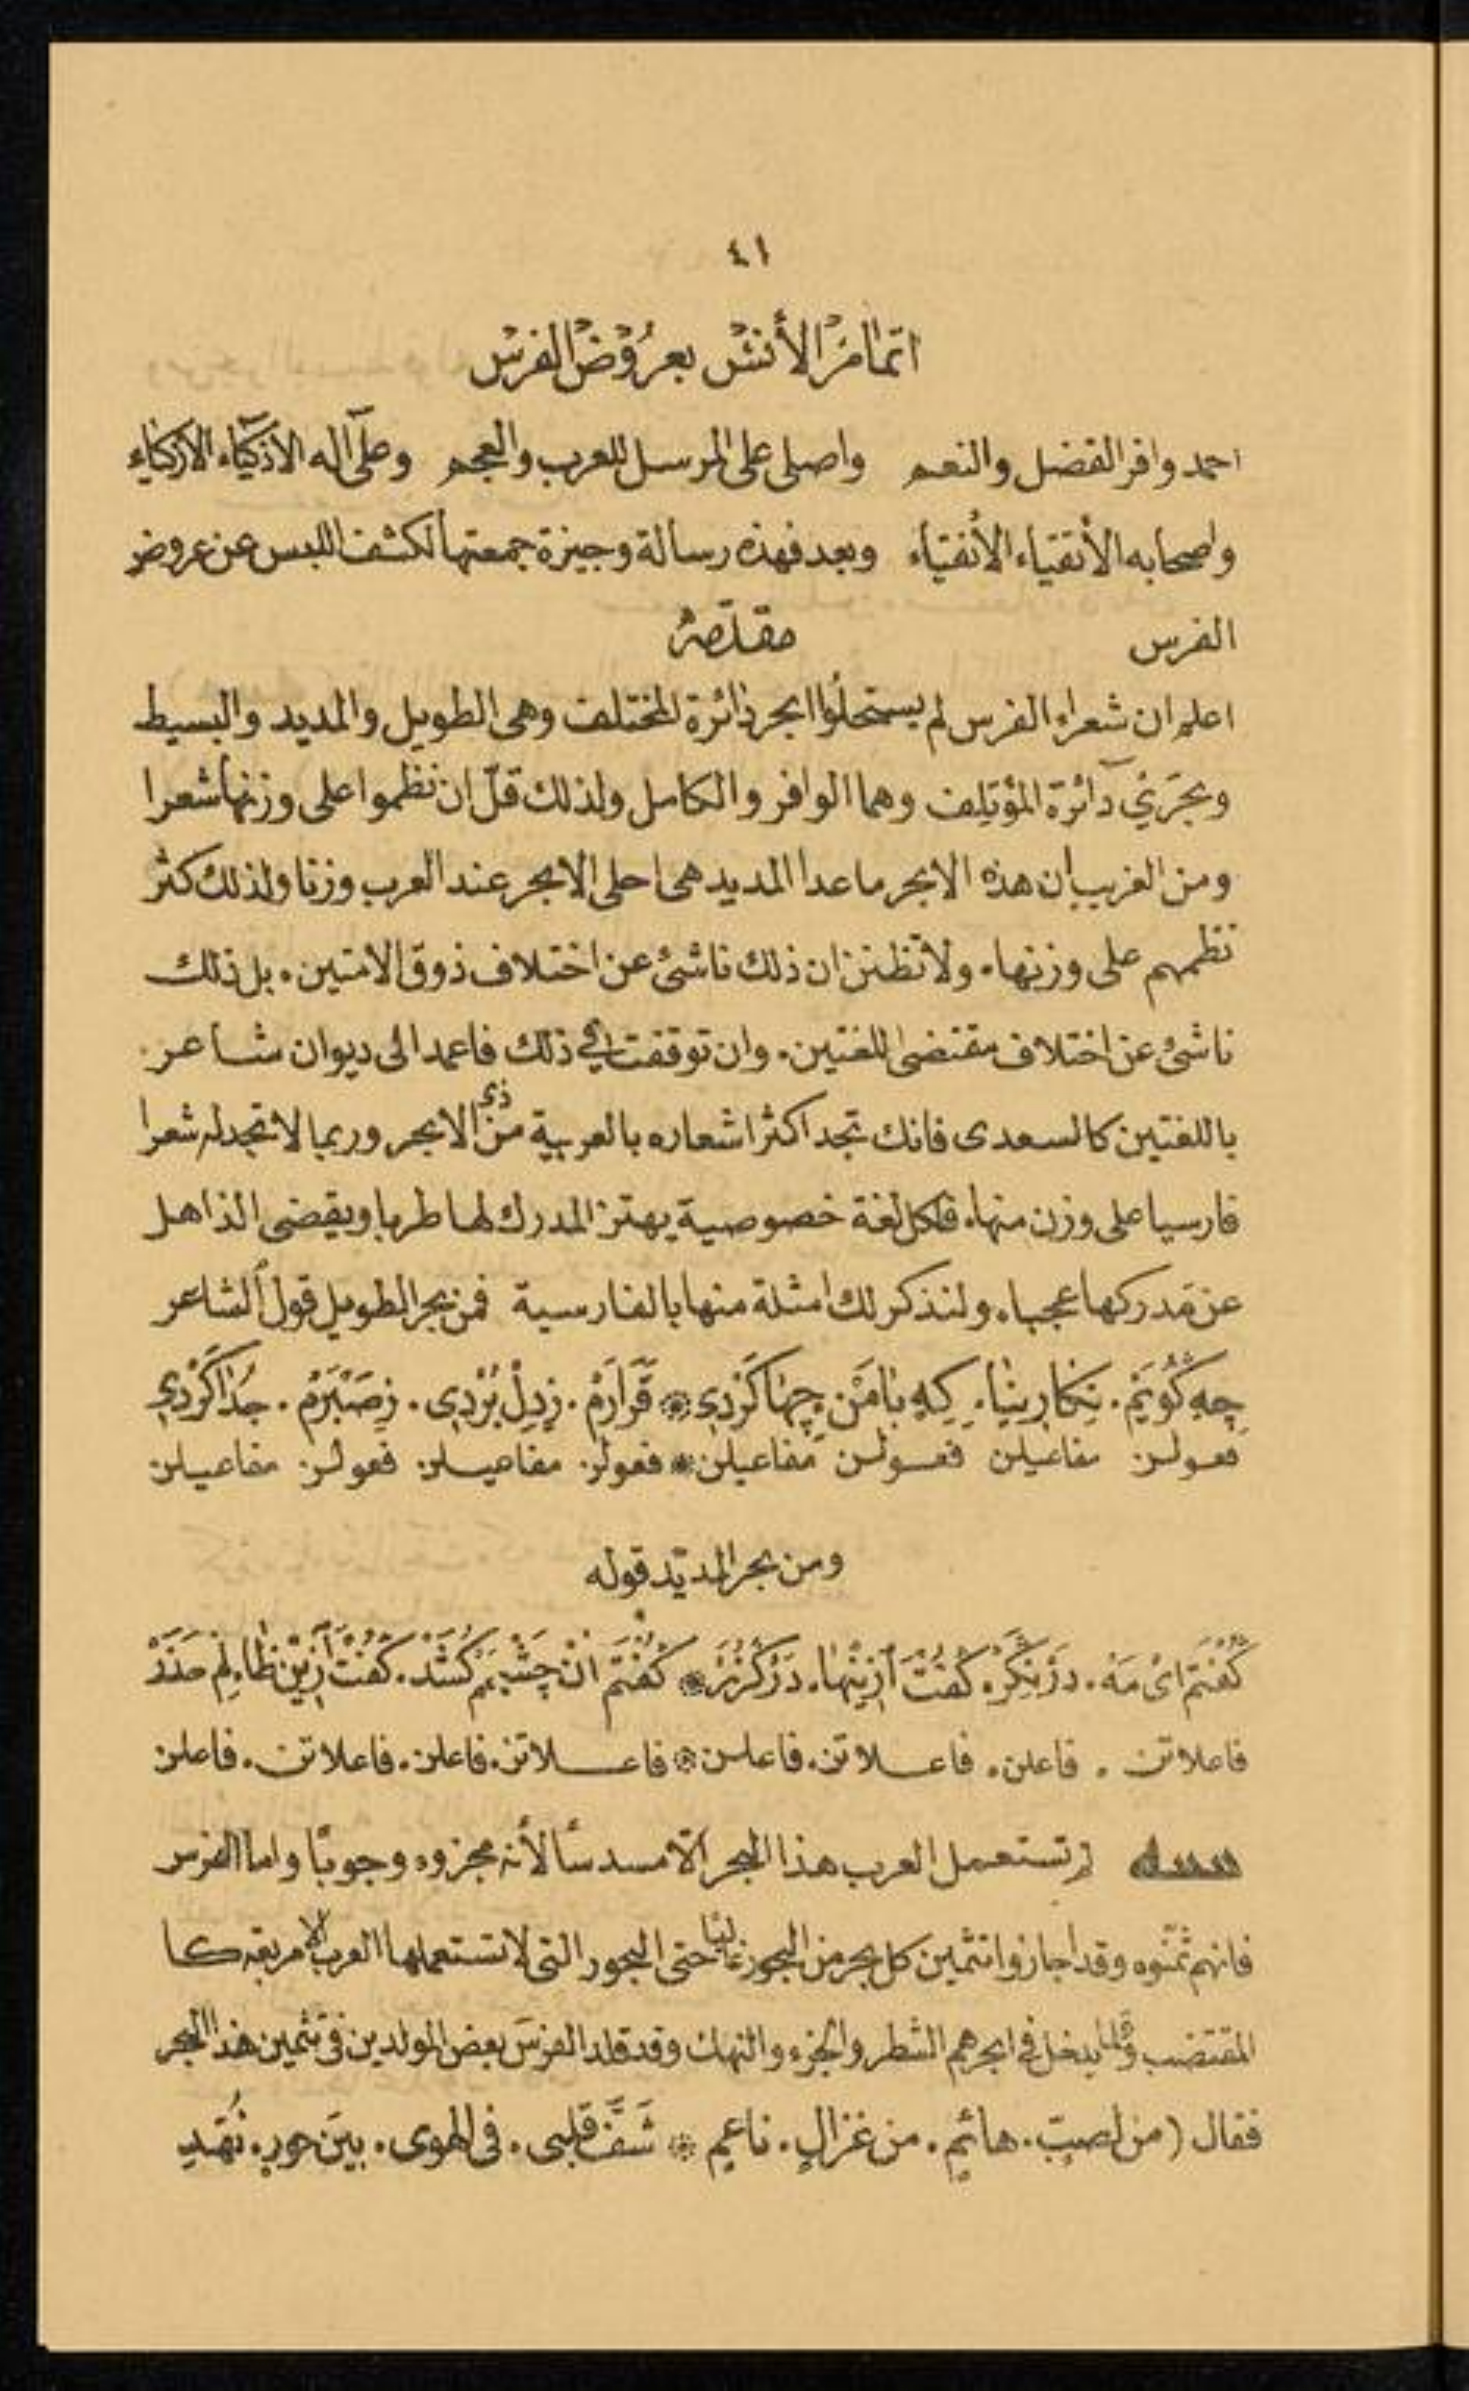 ٤١
اتمام الأنس بعروض الفرس
احمد وافر الفضل والنعم واصلى على المرسل للعرب والعجم وعلى آله الاذكياء الازكياء
واصحابه الأتقياء الأنقياء وبعد فهذه رسالة وجيزة جمعتها لكشف اللبس عن عروض
الفرس مقدّمة
اعلم ان شعراء الفرس لم يستحلوا ابحر دائرة المختلف وهى الطويل والمديد والبسيط
وبحرَيْ دائرة المؤتلف وهما الوافر والكامل ولذلك قلّ ان نظموا على وزنها شعرا
ومن الغريب ان هذه الابحر ماعدا المديد هى احلى الابحر عند العرب وزنا ولذلك كثر
نظمهم على وزنها. ولا تظنن ان ذلك ناشئ عن اختلاف ذوق الامتين. بل ذلك
ناشئ عن اختلاف مقتضى اللغتين. وان توقفت في ذلك فاعمد الى ديوان شاعر
باللغتين كالسعدى فانك تجد اكثر اشعاره بالعربية من ذي الابحر وربما لا تجد له شعرا
فارسيا على وزن منها. فلكل لغة خصوصية يهتز المدرك لها طربا ويقضى الذاهل
عن مدركها عجبا. ولنذكر لك امثلة منها بالفارسية فمن بحر الطويل قول الشاعر
چه گُويَمْ. نِگارِينَا. كِهِ بَامَنْ. چِهَا كَرْدِي * قَرَارَمْ. زِدِلْ بُرْدِى. زِصَبْرَمْ. جُدَا كَرْدِي
فعولن مفاعيلن فعولن مفاعيلن * فعولن مفاعيلن فعولن مفاعيلن
ومن بحر المديد قوله
گُفْتَم اىْ مَهْ. دَرْنِگَر. گُفْتْ ازينها. دَرْگُذَرْ * گُفْتَم انْ چَشْمَم كُشَدْ. گُفْت ازين ظالِمْ حَذَرْ
فاعلاتن. فاعلن. فاعلاتن. فاعلن * فاعلاتن. فاعلن. فاعلاتن. فاعلن
لم تستعمل العرب هذا البحر الّا مسدسًا لأنه مجزوء وجوبًا واما الفرس
فانهم ثمّنوه وقد اجازوا تثمين كل بحر من البحور غالبًا حتى البحور التى لا تستعملها العرب الا مربعة كا
المقتضب وقلما يدخل في ابحرهم الشطر والجزء والنهك وقد قلد الفرسَ بعض المولدين فى تثمين هذا البحر
فقال (من لصبّ. هائمٍ. من غزالٍ. ناعمٍ * شَفَّ قلبى. فى الهوى. بينَ حورٍ. نُهَّدِ